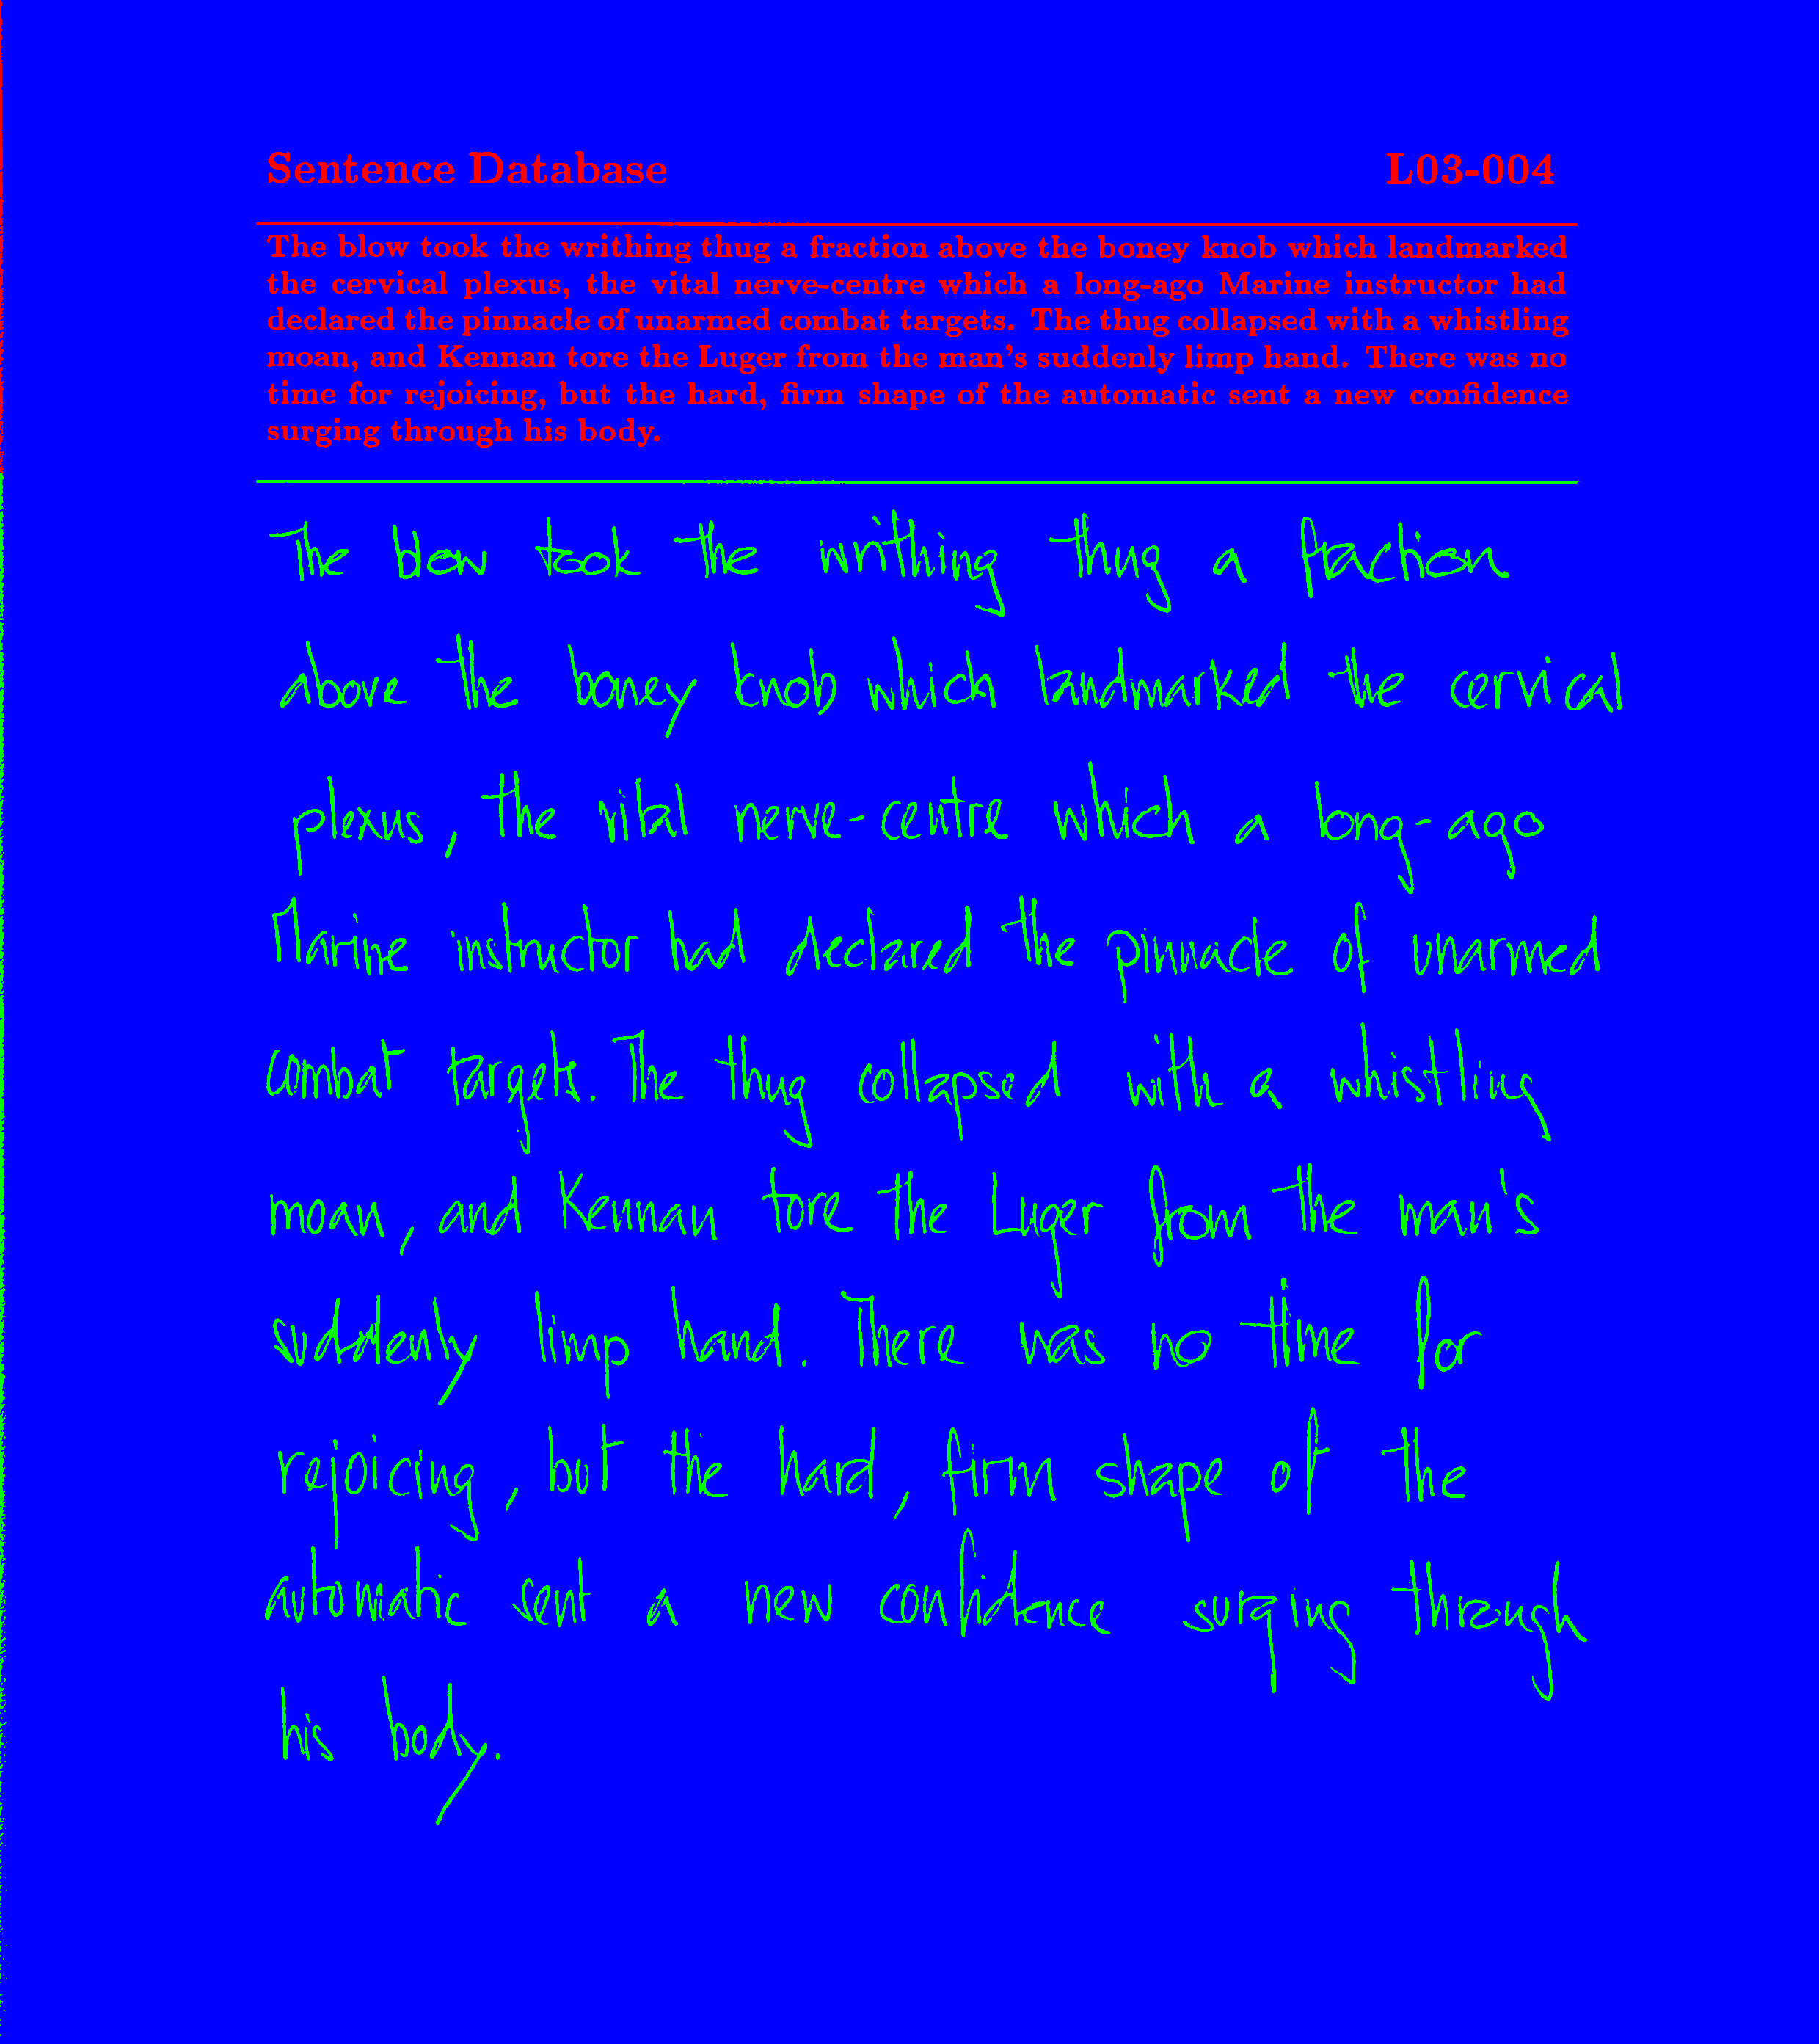 Sentence Database L03-004
The blow took the writhing thug a fraction above the boney knob which landmarked
the cervical plexus, the vital nerve-centre which a long-ago Marine instructor had
declared the pinnacle of unarmed combat targets. The thug collapsed with a whistling
moan, and Kennan tore the Luger from the man's suddenly limp hand. There was no
time for rejoicing, but the hard, firm shape of the automatic sent a new confidence
surging through his body.
The blow took the writhing thug a fraction
above the boney knob which landmarked the cervical
plexus, the vital nerve-centre which a long-ago
Marine instructor had declared the pinnacle of unarmed
combat targets. The thug collapsed with a whistling
moan, and Kennan tore the Luger from the man's
suddenly limp hand. There was no time for
rejoicing, but the hard, firm shape of the
automatic sent a new confidence surging through
his body.